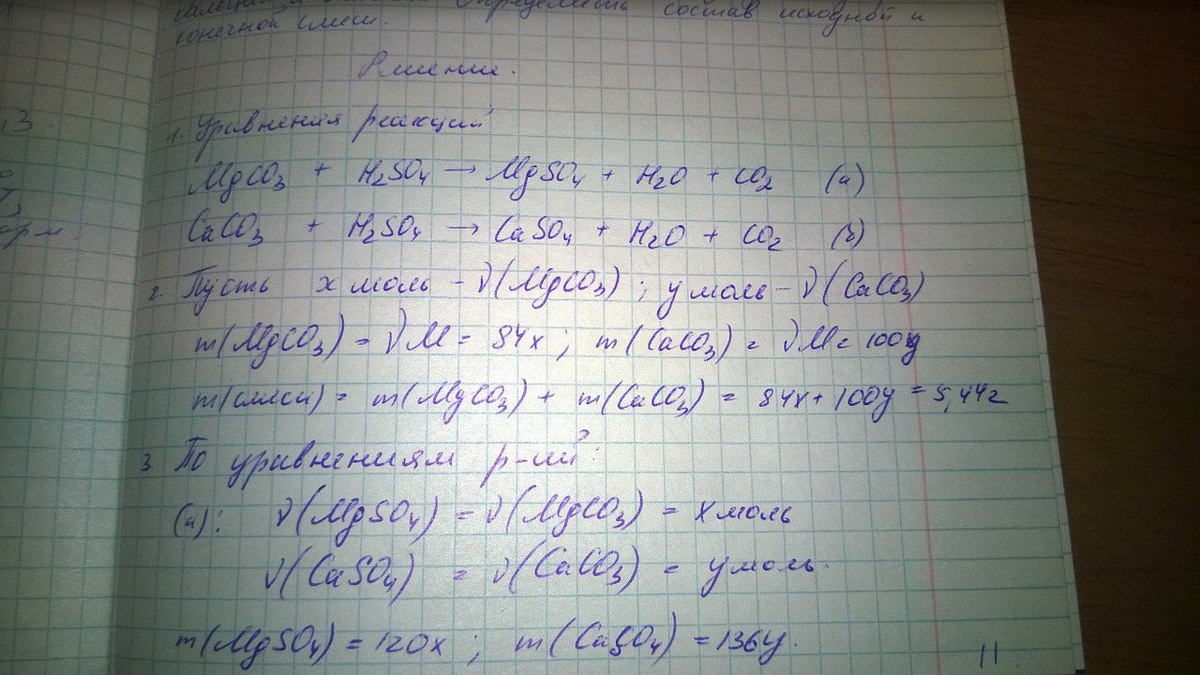 Определить состав исходной и
конечной смеси.
Решение.
13.
1. Уравнения реакций
MgCO3 + H2SO4 → MgSO4 + H2O + CO2 (а)
CaCO3 + H2SO4 → CaSO4 + H2O + CO2 (б)
2. Пусть x моль - ν(MgCO3) ; y моль - ν(CaCO3)
m(MgCO3) = νM = 84x ; m(CaCO3) = νM = 100y
m(смеси) = m(MgCO3) + m(CaCO3) = 84x + 100y = 5,44г
3. По уравнениям р-ий:
(а): ν(MgSO4) = ν(MgCO3) = x моль
ν(CaSO4) = ν(CaCO3) = y моль.
m(MgSO4) = 120x ; m(CaSO4) = 136y.
11